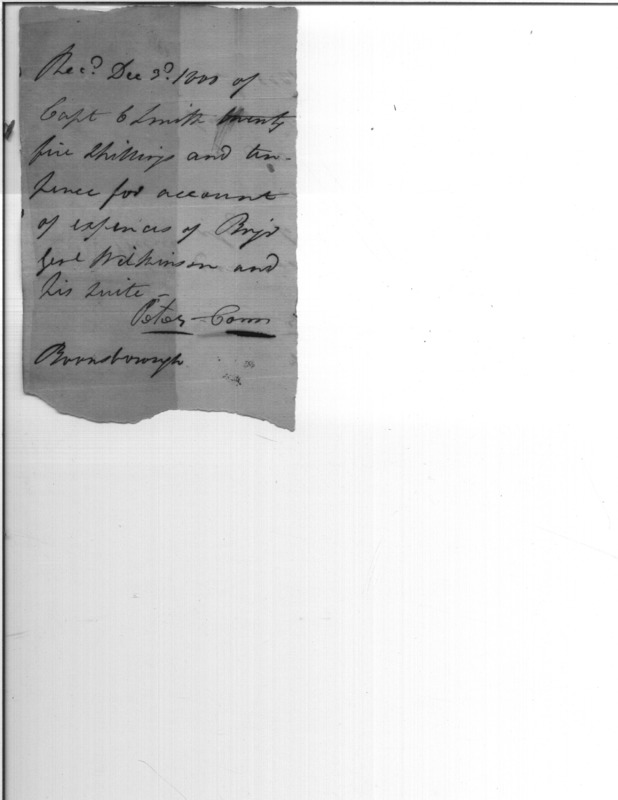 Rec.d Dec 3.d 1800 of
Capt C Smith twenty
five shillings and ten-
pence for account
of expences of Brigr
Genl Wilkinson and
his suite –
Peter Conn
Boonsborough